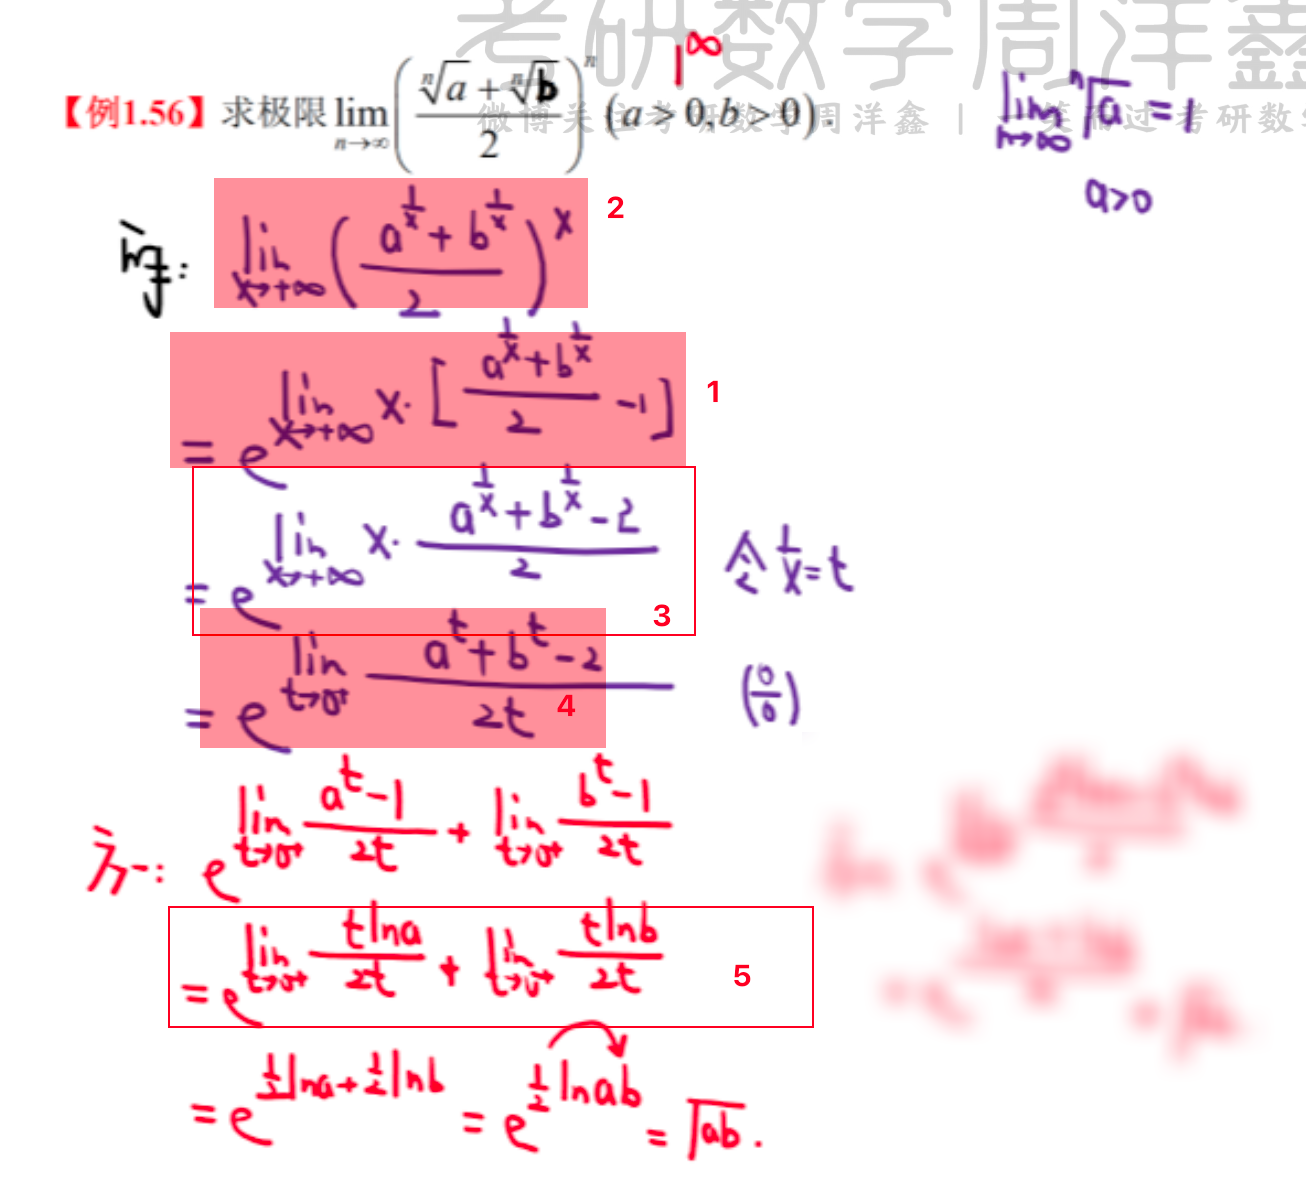 考研数学周洋鑫
1^∞
【例1.56】求极限 lim_{n→∞} ( (ⁿ√a + ⁿ√b) / 2 )^n (a > 0, b > 0).
lim_{n→∞} ⁿ√a = 1
a>0
2
lim_{x→+∞} ( (a^{1/x} + b^{1/x}) / 2 )^x
= e^{lim_{x→+∞} x·[ (a^{1/x} + b^{1/x}) / 2 - 1 ]}
1
= e^{lim_{x→+∞} x· (a^{1/x} + b^{1/x} - 2) / 2}
令 1/x = t
3
= e^{lim_{t→0⁺} (a^t + b^t - 2) / 2t}
(0/0)
4
方一: e^{lim_{t→0⁺} (a^t - 1) / 2t + lim_{t→0⁺} (b^t - 1) / 2t}
= e^{lim_{t→0⁺} tlna / 2t + lim_{t→0⁺} tlnb / 2t}
5
= e^{1/2 lna + 1/2 lnb} = e^{1/2 lnab} = √ab.